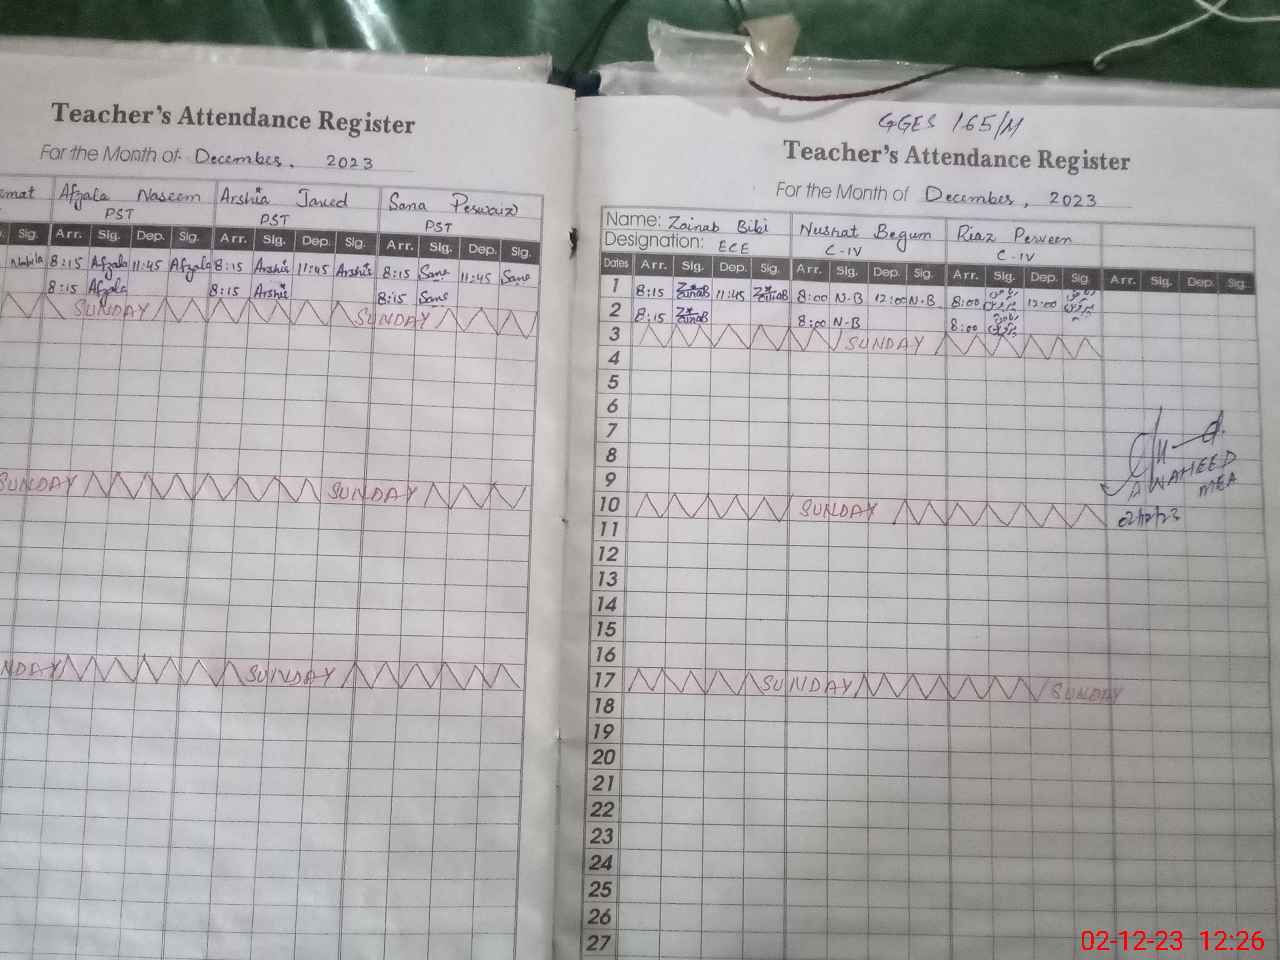 Teacher's Attendance Register
For the Month of December, 2023
Afzala Naseem Arshia Javed Sana Perwaiz
PST PST PST
Sig. Arr. Sig. Dep. Sig. Arr. Sig. Dep. Sig. Arr. Sig. Dep. Sig.
8:15 Afzala 11:45 Afzala 8:15 Arshia 11:45 Arshia 8:15 Sana 11:45 Sana
8:15 Afzala 8:15 Arshia 8:15 Sana
SUNDAY SUNDAY
SUNDAY SUNDAY
NDAY SUNDAY
GGES 165/M
Teacher's Attendance Register
For the Month of December, 2023
Name: Zainab Bibi Nusrat Begum Riaz Perveen
Designation: ECE C-IV C-IV
Dates Arr. Sig. Dep. Sig. Arr. Sig. Dep. Sig. Arr. Sig. Dep. Sig. Arr. Sig. Dep. Sig.
1 8:15 Zainab 11:45 Zainab 8:00 N-B 12:00 N-B 8:00 ریاض پروین 12:00 ریاض پروین
2 8:15 Zainab 8:00 N-B 8:00 ریاض پروین
3 SUNDAY
4
5
6
7
8
9
10 SUNDAY
11
12
13
14
15
16
17 SUNDAY SUNDAY
18
19
20
21
22
23
24
25
26
27
A WAHEED
MEA
02/12/23
02-12-23 12:26